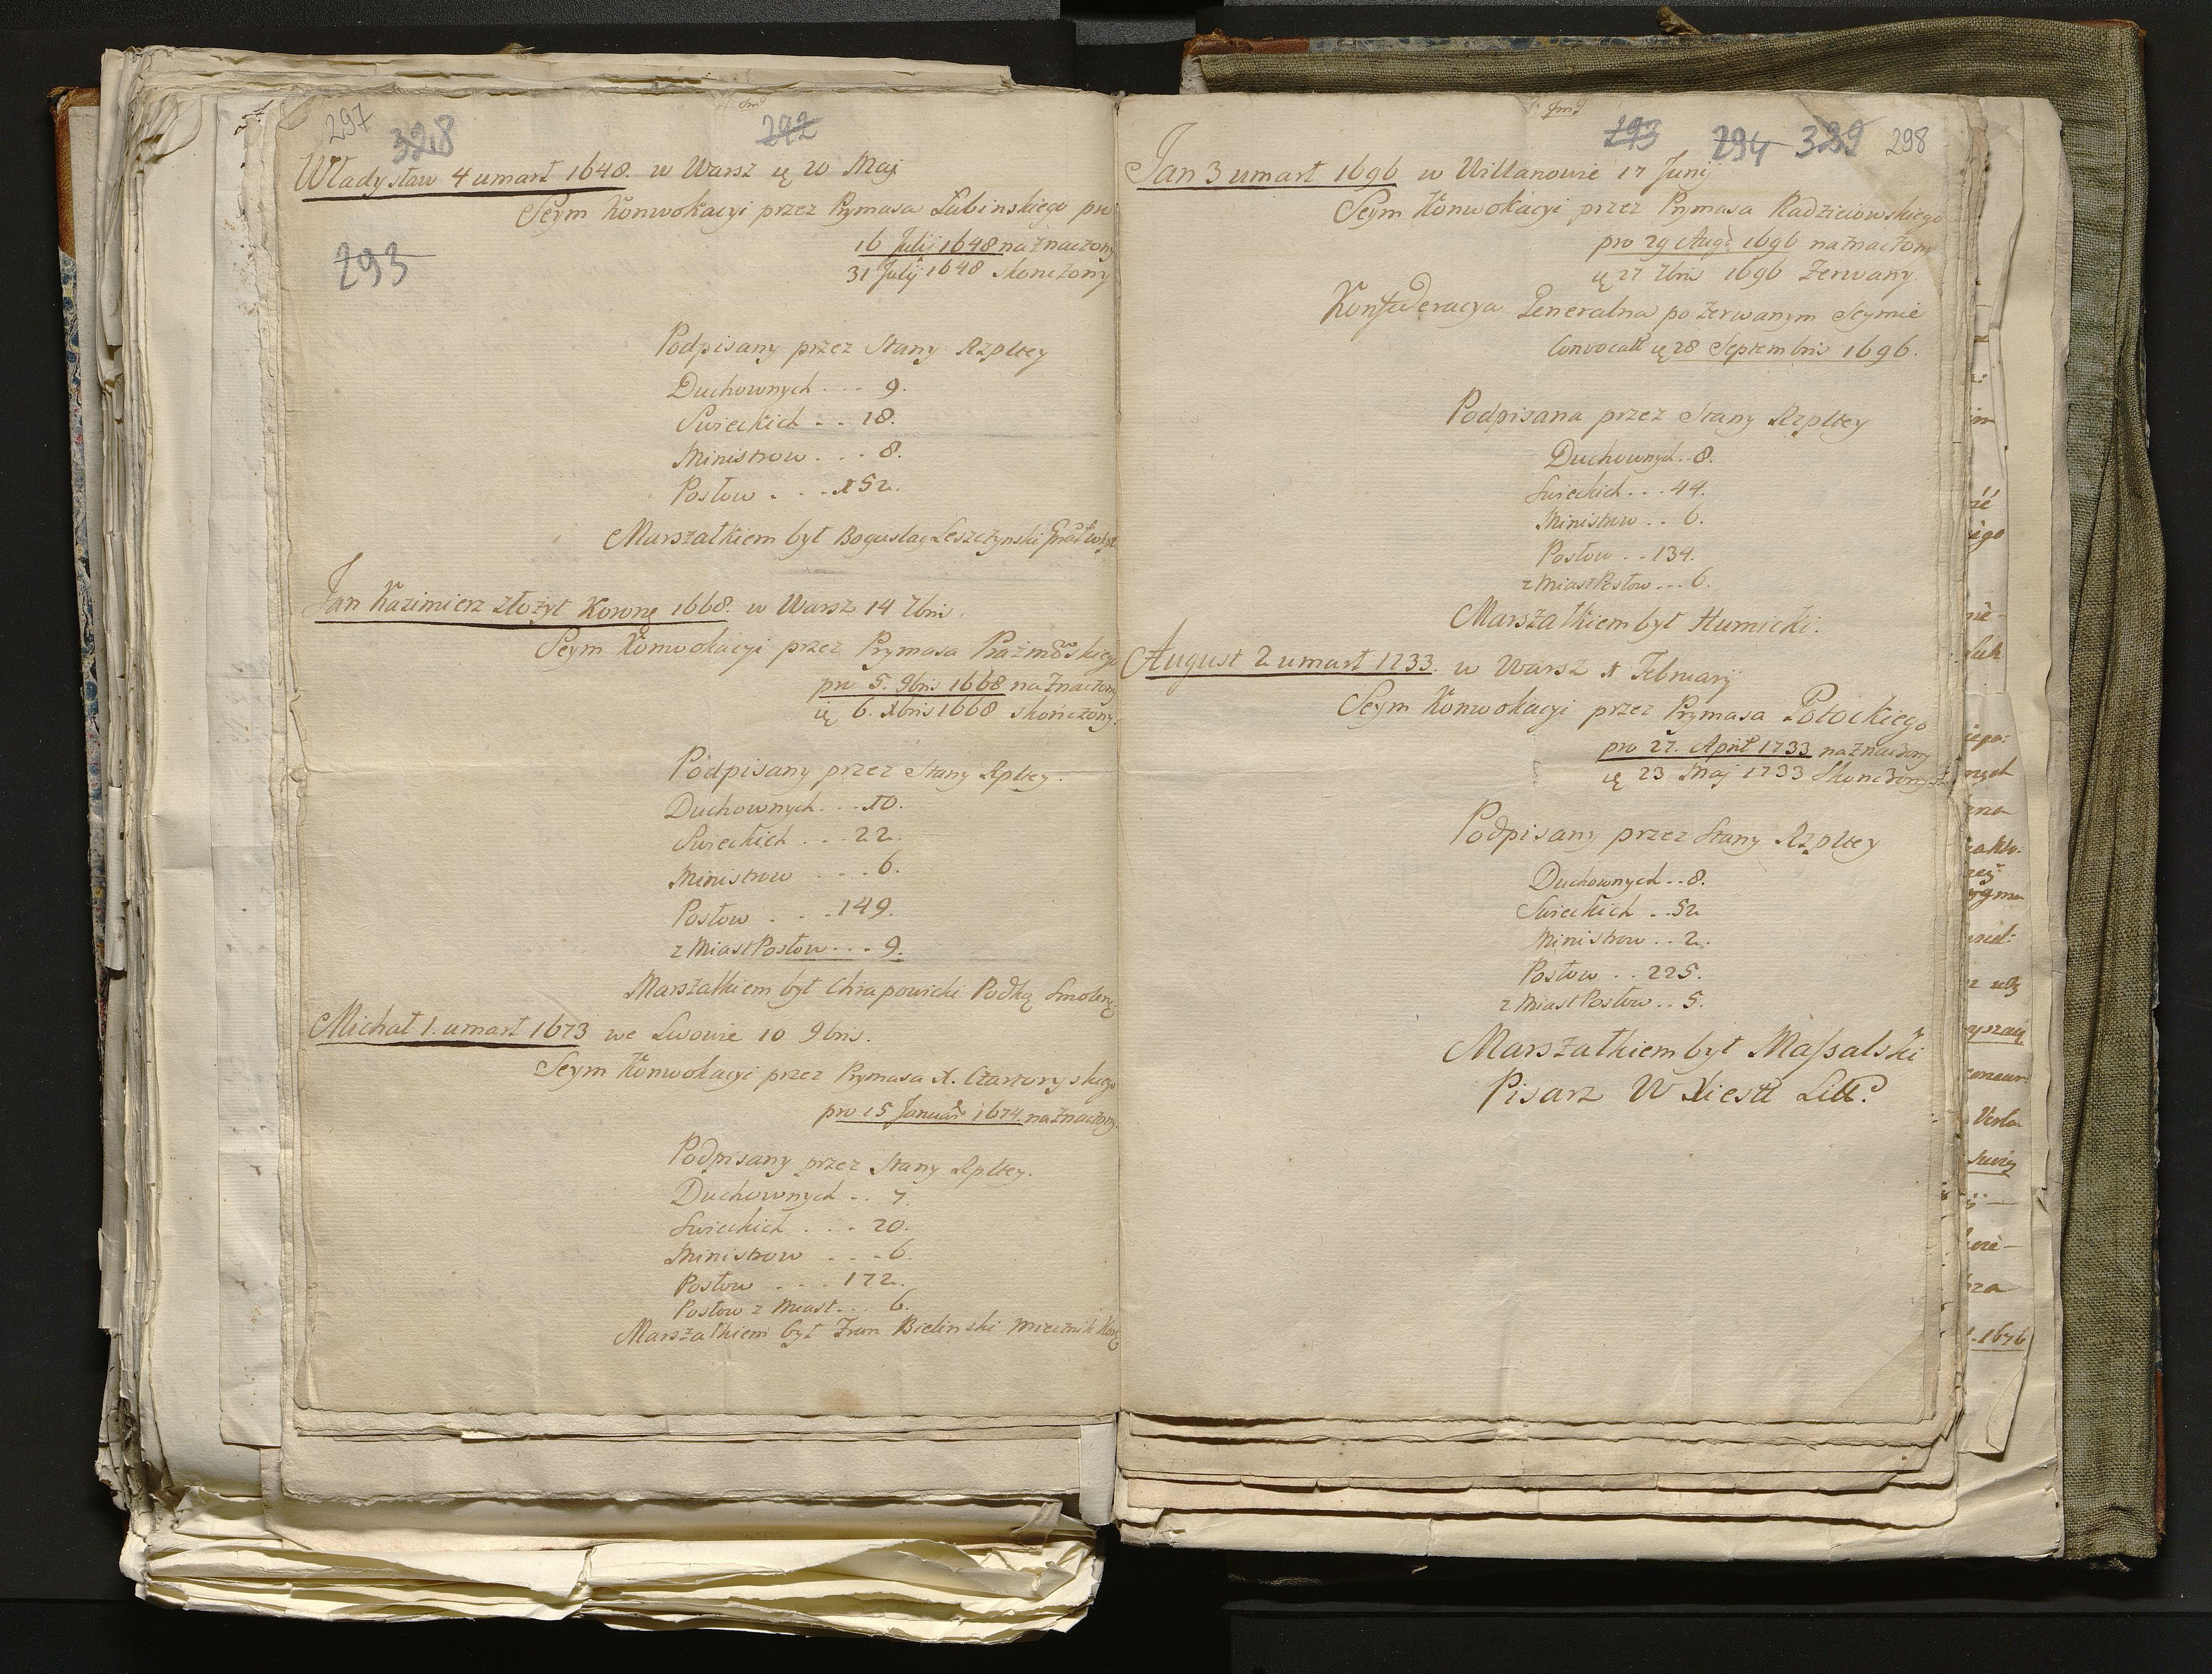 297 328 292
Władysław 4 umarł 1648. w Warsz ię 20 Maj
Seym Konwokacyi przez Prymasa Łubinskiego pro
16 Julij 1648 naznaczony
31 Julij 1648 skonczony
293
Podpisany przez Stany Rzpltey
Duchownych .... 9.
Swieckich . . 18.
Ministrow . . . 8.
Posłow . . . 152.
Marszałkiem był Bogusław Leszczynski
Jan Kazimierz złożył Koronę 1668. w Warsz 14 7bris.
Seym Konwokacyi przez Prymasa Prażmowskiego
pro 5. 9bris 1668 naznaczony
ię 6. Xbris 1668 skończony.
Podpisany przez Stany Rpltey.
Duchownych . . . 10.
Swieckich . . . 22.
Ministrow . . . . 6.
Posłow . . . 149.
z Miast Posłow . . . 9.
Marszałkiem był Chrapowicki Podką Smoleną
Michał 1. umarł 1673 we Lwowie 10 9bris.
Seym Konwokacyi przez Prymasa X. Czartoryskiego
pro 15 Januar 1674. naznaczony.
Podpisany przez Stany Rpltey.
Duchownych . . 7
Swieckich . . . 20.
Ministrow . . . 6.
Posłow . . . . 172.
Posłow z Miast . . . 6.
Marszałkiem był Fran Bielinski Miecznik Kor
293 294 329 298
Jan 3 umarł 1696 w Willanowie 17 Junij
Seym Konwokacyi przez Prymasa Radzieiowskiego
pro 29 Aug 1696 naznaczony
ię 27 7bris 1696 Zerwany
Konfederacya Generalna po zerwanym Seymie
Convocatt ię 28 Septembris 1696.
Podpisana przez Stany Rzpltey
Duchownych . . 8.
Swieckich . . . 44.
Ministrow . . 6.
Posłow . . 134.
z Miast Posłow . . . 6.
Marszałkiem był Humicki.
August 2 umarł 1733. w Warsz 1 Februarij
Seym Konwokacyi przez Prymasa Potockiego
pro 27. April 1733 naznaczony
ię 23 Maj 1733 Skonczony
Podpisany przez Stany Rzpltey
Duchownych . . 8.
Swieckich . . 52
Ministrow . . 2.
Posłow . . 225.
z Miast Posłow . . 5.
Marszałkiem był Massalski
Pisarz W Xiestt Litt.